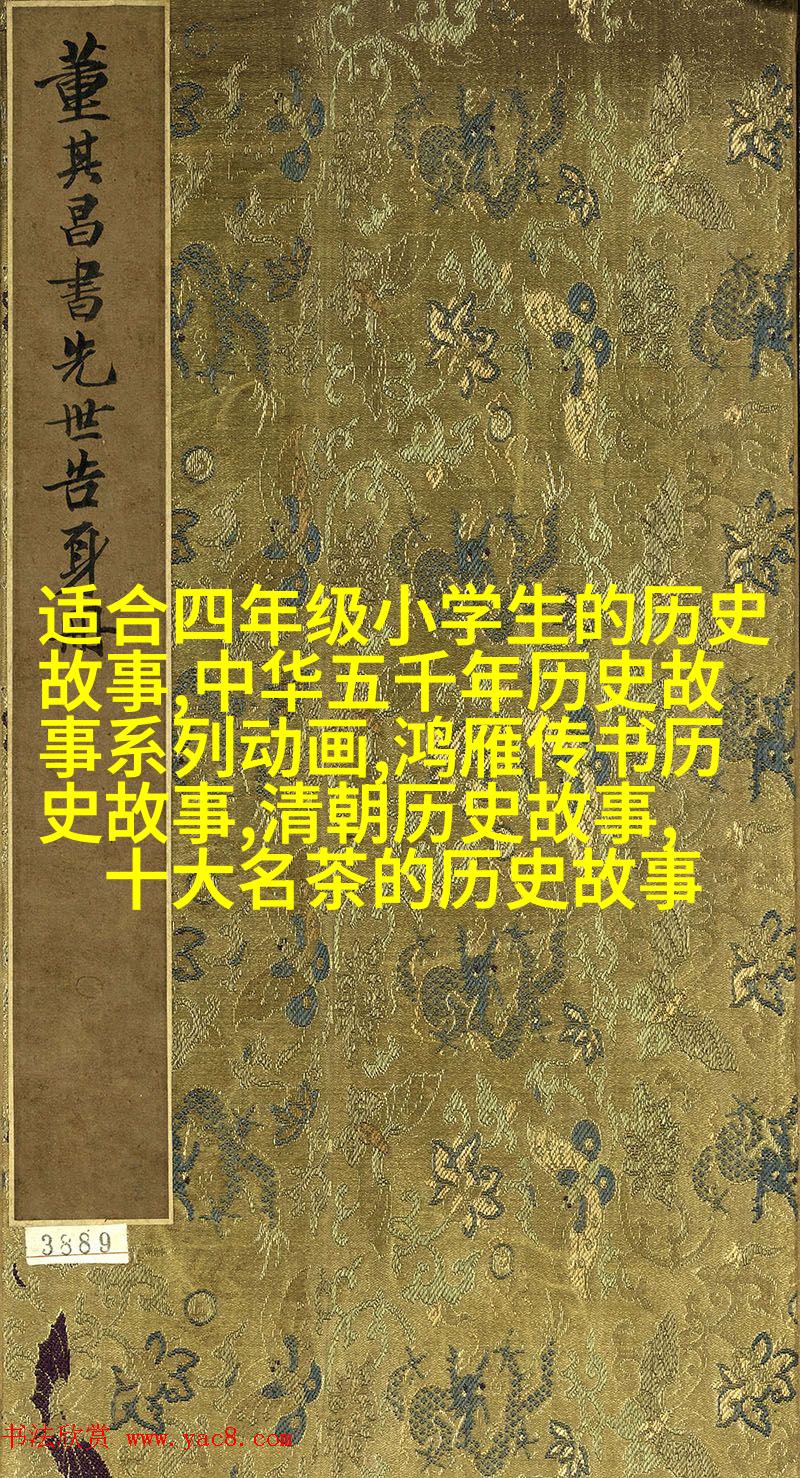 董其昌書先世告身冊
适合四年级小学生的历史
故事,中华五千年历史故
事系列动画,鸿雁传书历
史故事,清朝历史故事,
十大名茶的历史故事
3889
书法欣赏 www.yac8.com